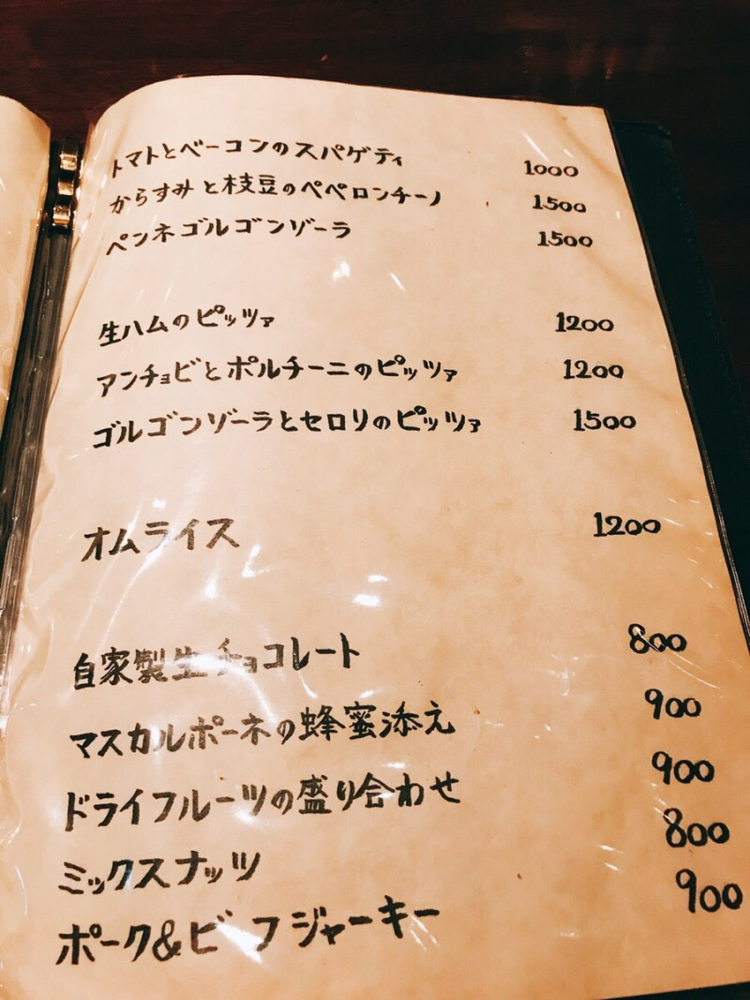 トマトとベーコンのスパゲティ 1000
からすみと枝豆のペペロンチーノ 1500
ペンネゴルゴンゾーラ 1500
生ハムのピッツァ 1200
アンチョビとポルチーニのピッツァ 1200
ゴルゴンゾーラとセロリのピッツァ 1500
オムライス 1200
自家製生チョコレート 800
マスカルポーネの蜂蜜添え 900
ドライフルーツの盛り合わせ 900
ミックスナッツ 800
ポーク&ビーフジャーキー 900